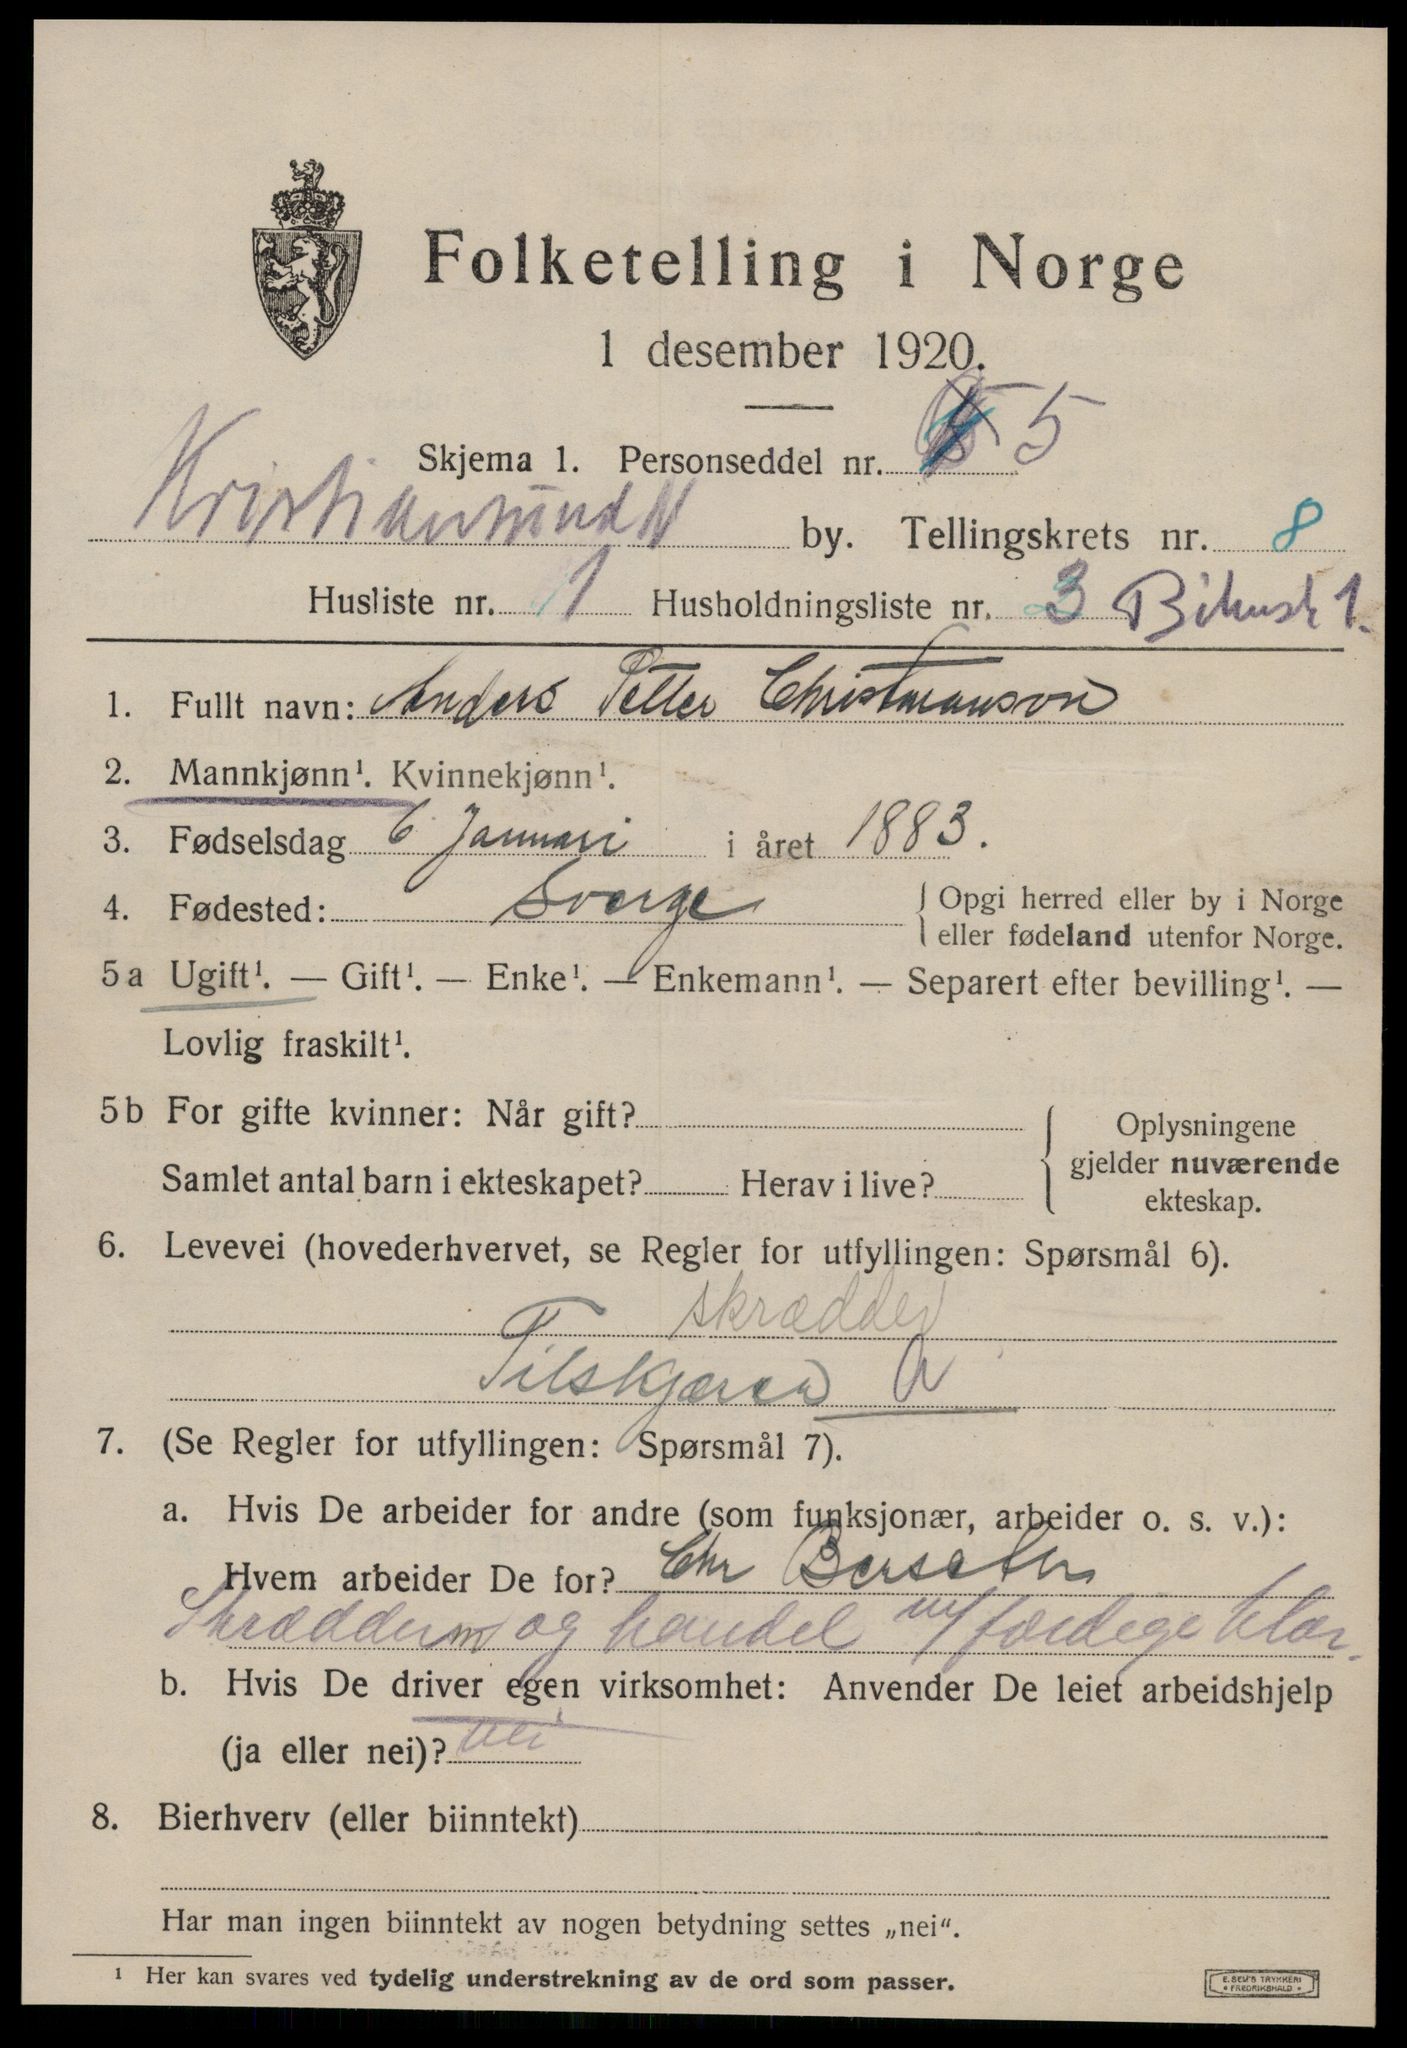 Folketelling i Norge
1 desember 1920.
Skjema 1. Personseddel nr. 5
Kristiansund N by. Tellingskrets nr. 8
Husliste nr. 1 Husholdningsliste nr. 3 Bihust 1.
1. Fullt navn: Anders Petter Christmanson
2. Mannkjønn¹. Kvinnekjønn¹.
3. Fødselsdag 6 Januari i året 1883.
4. Fødested: Sverge { Opgi herred eller by i Norge
eller fødeland utenfor Norge.
5a Ugift¹. — Gift¹. — Enke¹. — Enkemann¹. — Separert efter bevilling¹. —
Lovlig fraskilt¹.
5b For gifte kvinner: Når gift? { Oplysningene
gjelder nuværende
Samlet antal barn i ekteskapet? Herav i live? ekteskap.
6. Levevei (hovederhvervet, se Regler for utfyllingen: Spørsmål 6).
skrædder
Tilskjærer a
7. (Se Regler for utfyllingen: Spørsmål 7).
a. Hvis De arbeider for andre (som funksjonær, arbeider o. s. v.):
Hvem arbeider De for? Chr Berseter
Skrædderm og handel m/ færdige klær
b. Hvis De driver egen virksomhet: Anvender De leiet arbeidshjelp
(ja eller nei)? nei
8. Bierhverv (eller biinntekt)
Har man ingen biinntekt av nogen betydning settes „nei“.
¹ Her kan svares ved tydelig understrekning av de ord som passer.
E. SEM'S TRYKKERI
FREDRIKSHALD